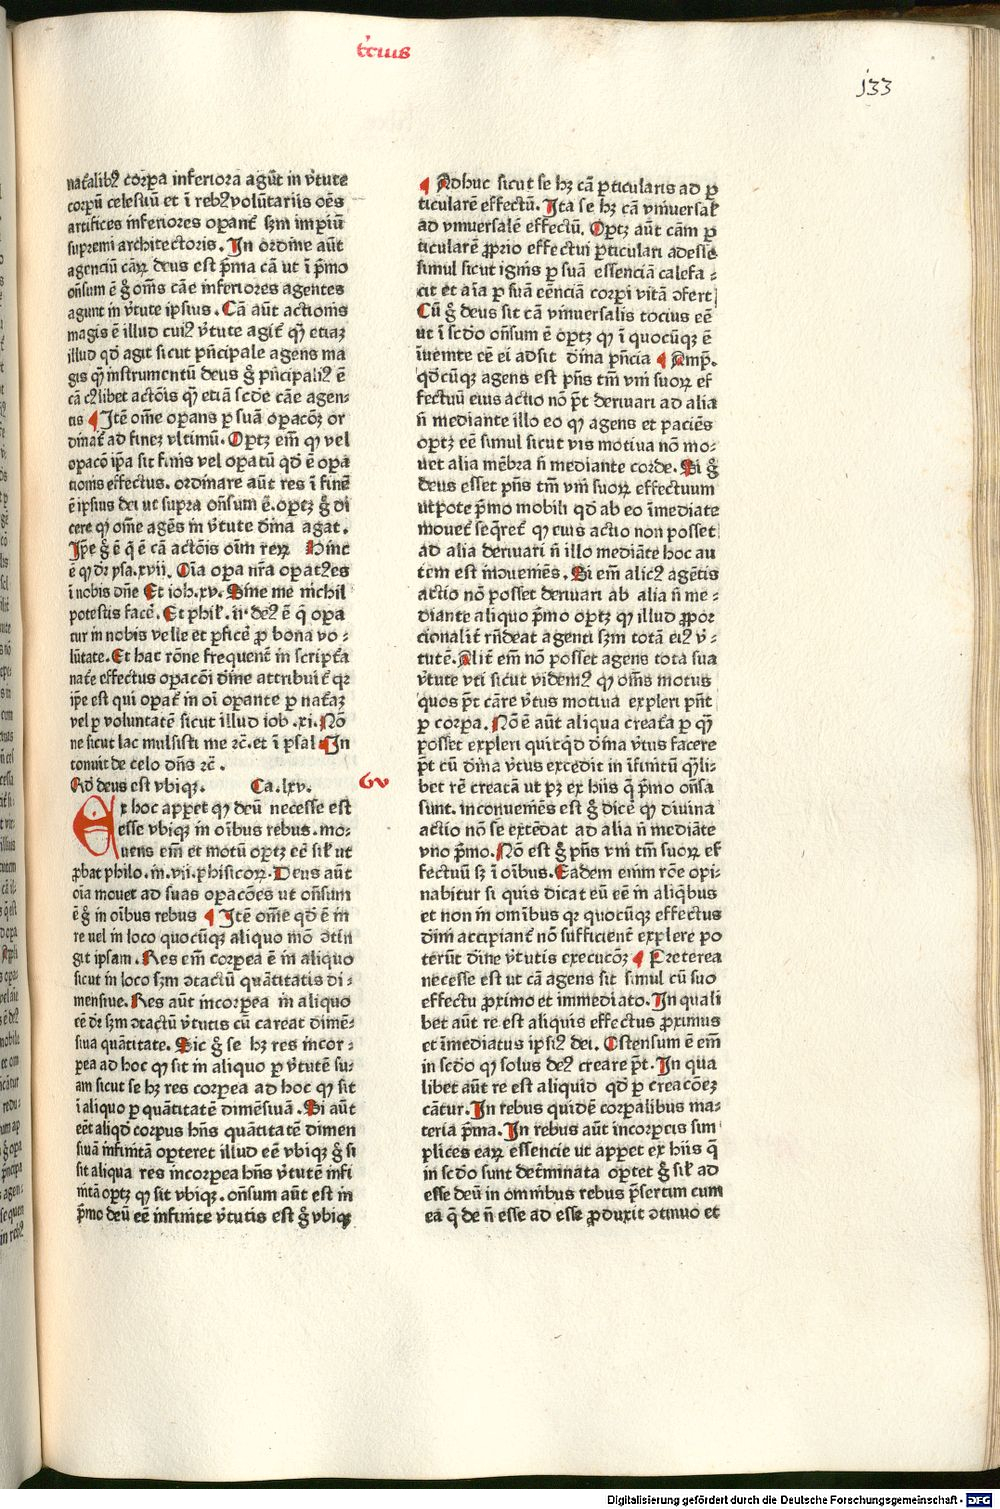 tr̄cius
133
nať́alibꝰ corꝑa inferiora agūt in v̓tute
corpū celesiuū et ī rebꝰ volūtariis oēs
artifices inferiores operant̉ scꝫm impiū
supremi architectoris. In ordine aūt
agenciū cāꝝ deus est pͥma cā ut ī pͥmo
oñsum ē g̊ om̄s cāe inferiores agentes
agunt in v̓tute ipsius. Cā aūt actionis
magis ē illud cuiꝰ v̓tute agit̉ qꝫ etiaꝫ
illud qd̓ agit sicut pͥncipale agens ma
gis qꝫ instrumentū deus g̊ pͥncipaliꝰ ē
cā cꝰlibet actōis qꝫ etiā sc̄de cāe agen-
tis ¶ Itē om̄e oꝑans ꝑ suā oꝑacōꝫ or
dinat̉ ad fineꝫ vltimū. Oꝑtꝫ em̄ qꝫ vel
oꝑacō ip̄a sit finis vel oꝑatū qd̓ ē oꝑa
tionis effectus. ordinare aūt res ī finē
ē ipsius dei ut supra oñsum ē. oꝑtꝫ g̊ di
cere qꝫ om̄e agēs in v̓tute dīna agat.
Ip̄e g̊ ē q̄ ē cā actōis oīm reꝝ Hinc
ē qd̓ dr̄ ysa.xvii. Oīa oꝑa nr̄a oꝑatꝰes
ī nobis dn̄e Et ioh.xv. Sine me nichil
potestis facē. Et phił. ii. deꝰ ē q̄ oꝑa
tur in nobis velle et ꝑficē ꝓ bona vo-
lūtate. Et hac rōne frequent̉ in script̉a
nat̉e effectus oꝑacōi dīne attribuūt̉ qꝛ
ip̄e est qui oꝑat̉ in oī oꝑante ꝑ nat̉aꝫ
vel ꝑ voluntatē sicut illud iob .xi. Nō
ne sicut lac mulsisti me ⁊c̄. et ī psal ¶ In
tonuit de celo dn̄s ⁊c̄ .
Qd̓ deus est vbiqꝫ. Ca. lxv.
Ex hoc apꝑet qꝫ deū necesse est
esse vbiqꝫ in oībus rebus. mo-
uens em̄ et motū oꝑtꝫ eē sił ut
ꝓbat philo. in .vii. phisicoꝝ. Deus aūt
oīa mouet ad suas oꝑacōes ut oñsum
ē g̊ in oībus rebus ¶ Itē om̄e qd̓ ē in
re uel in loco quocūqꝫ aliquo mō ↄtin
git ipsam. Res em̄ corꝑea ē in aliquo
sicut in loco scꝫm ↄtactū quātitatis di-
mensiue. Res aūt incorꝑea in aliquo
eē dr̄ scꝫm ↄtactū v̓tutis cū careat dimē-
siua quātitate. Sic g̊ se hꝫ res incor-
ꝑea ad hoc qꝫ sit in aliquo ꝑ v̓tutē su-
am sicut se hꝫ res corꝑea ad hoc qꝫ sit
ī aliquo ꝑ quātitatē dimēsiuā. Si aūt
eēt aliqd̓ corpus hn̄s quātitatē dimen
siuā infinitā oꝑteret illud eē vbiqꝫ g̊ si
sit aliqua res incorꝑea hn̄s v̓tutē infi
nitā oꝑtꝫ qꝫ sit vbiqꝫ. oñsum aūt est in
pͥmo deū eē infinite v̓tutis est g̊ vbiqꝫ
Gv
¶ Adhuc sicut se hꝫ cā ꝑticularis ad ꝑ
ticularē effectū. Ita se hꝫ cā vniuersał
ad vniuersalē effectū. Oꝑtꝫ aūt cām ꝑ
ticularē ꝓprio effectui ꝑticulari adesse
simul sicut ignis ꝑ suā essenciā calefa-
cit et aīa ꝑ suā eēnciā corꝑi vitā ↄfert
Cū g̊ deus sit cā vniuersalis tocius eē
ut ī sc̄do oñsum ē oꝑtꝫ qꝫ ī quocūqꝫ ē
īuenire eē ei adsit dīna pn̄cia ¶ Ampͥ.
qd̓cūqꝫ agens est pn̄s tm̄ vni suoꝝ ef
fectuū eius actio nō pt̄ deriuari ad alia
n̄ mediante illo eo qꝫ agens et paciēs
oꝑtꝫ eē simul sicut vis motiua nō mo-
uet alia mēbra n̄ mediante corde. Si g̊
deus esset pn̄s tm̄ vni suoꝝ effectuum
utpote pͥmo mobili qd̓ ab eo īmediate
mouet̉ seq̄ret̉ qꝫ eius actio non posset
ad alia deriuari n̄ illo mediāte hoc au
tem est incōueniēs. Si em̄ alicꝰ agētis
actio nō posset deriuari ab alia n̄ me-
diante aliquo pͥmo oꝑtꝫ qꝫ illud ꝓpor
cionalit̉ rn̄deat agenti scꝫm totā eiꝰ v̓-
tutē. Alit̉ em̄ nō posset agens tota sua
v̓tute vti sicut videmꝰ qꝫ om̄s motus
quos pt̄ cāre v̓tus motiua expleri pn̄t
ꝑ corꝑa. Nō ē aūt aliqua creat̉a ꝑ qꝫ
posset expleri quitqd̓ dīna v̓tus facere
pt̄ cū dīna v̓tus excedit in īfinitū qꝫli-
bet rē creatā ut pꝫ ex hiis q̄ pͥmo oñsa
sunt. inconueniēs est g̊ dicē qꝫ diuina
actio nō se extēdat ad alia n̄ mediāte
vno pͥmo. Nō est g̊ pn̄s vni tm̄ suoꝝ ef
fectuū sꝫ ī oībus. Eadem enim rōe opi-
nabitur si quis dicat eū eē in aliqͥbus
et non in omībus qꝛ quocūqꝫ effectus
dīni accipiant̉ nō sufficient̉ explere po
terūt dīne v̓tutis execucōꝫ ¶ Preterea
necesse est ut cā agens sit simul cū suo
effectu ꝓximo et immediato. In quali
bet aūt re est aliquis effectus ꝓximus
et īmediatus ipsiꝰ dei. Ostensum ē em̄
in sc̄do qꝫ solus deꝰ creare pt̄. In qua
libet aūt re est aliquid qd̓ ꝑ creacōeꝫ
cātur. In rebus quidē corꝑalibus ma-
teria pͥma. In rebus aūt incorꝑeis sim
plices eaꝝ essencie ut apꝑet ex hiis q̄
in sc̄do sunt det̉minata oꝑtet g̊ sił ad
esse deū in omnibus rebus pͥsertim cum
ea q̄ de n̄ esse ad esse ꝓduxit ↄtinuo et
Digitalisierung gefördert durch die Deutsche Forschungsgemeinschaft - DFG